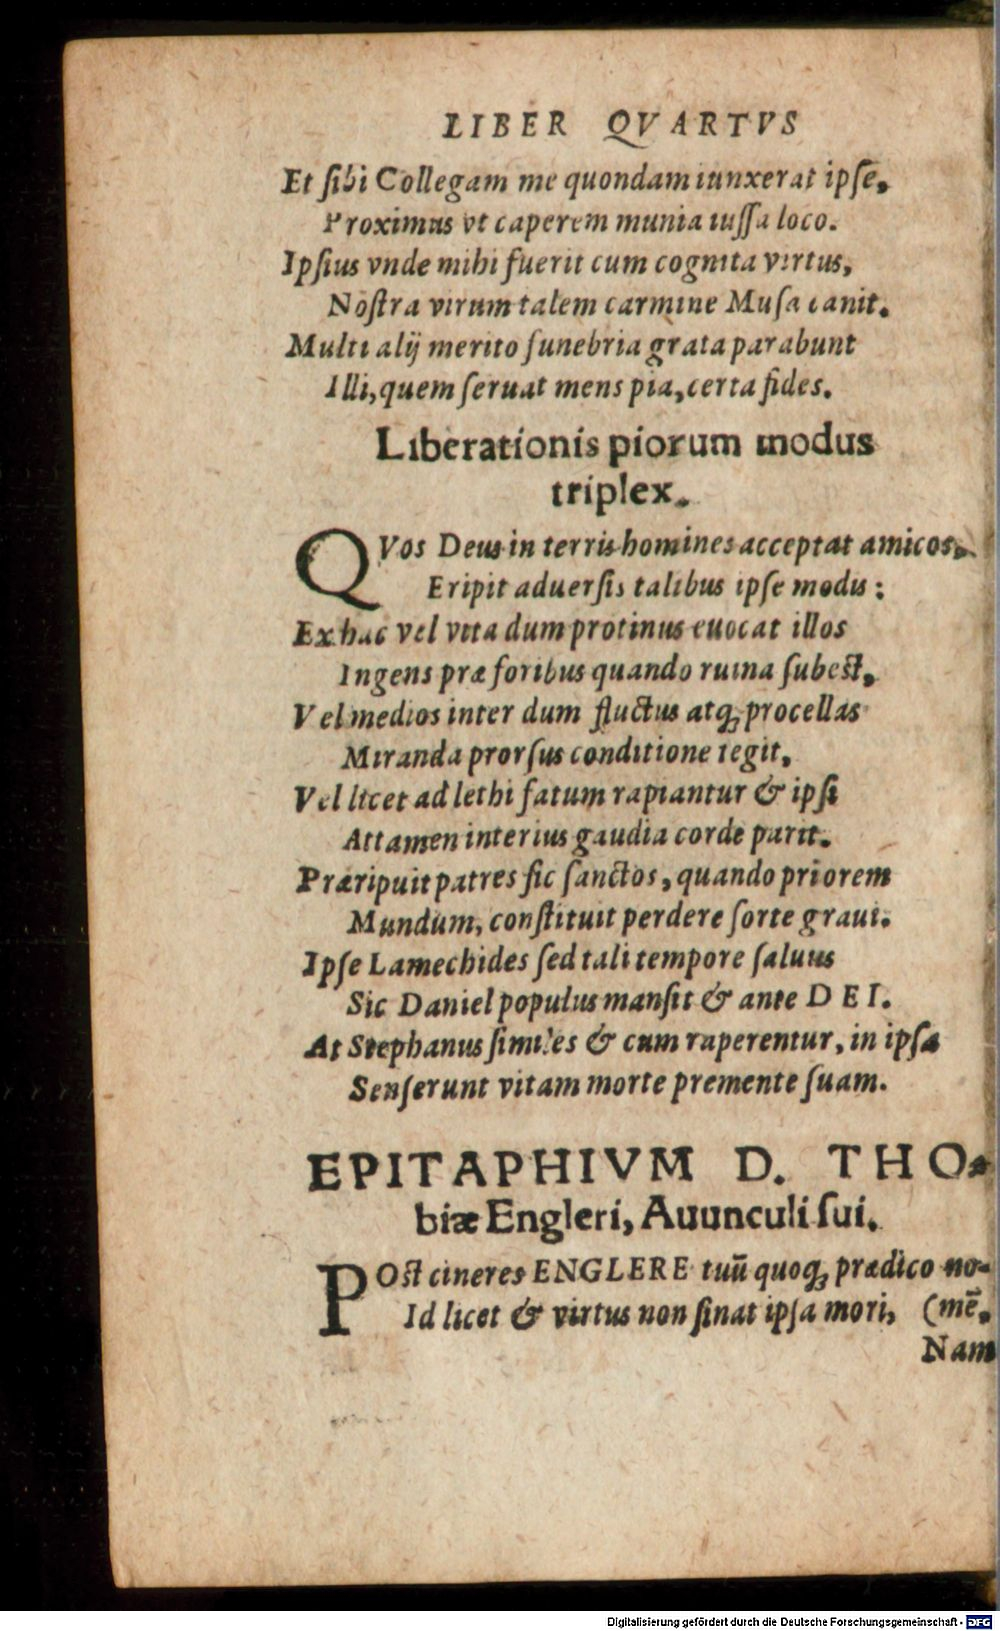 LIBER QVARTVS
Et ſibi Collegam me quondam iunxerat ipſe,
Proximus vt caperem munia iuſſa loco.
Ipſius vnde mihi fuerit cum cognita virtus,
Noſtra virum talem carmine Muſa canit.
Multi alij merito funebria grata parabunt
Illi, quem ſeruat mens pia, certa fides.
Liberationis piorum modus
triplex.
QVos Deus in terris homines acceptat amicos,
Eripit aduerſis talibus ipſe modis:
Ex hac vel vita dum protinus euocat illos
Ingens præ foribus quando ruina ſubeſt,
Vel medios inter dum fluctus atq; procellas
Miranda prorſus conditione tegit,
Vel licet ad lethi fatum rapiantur & ipſi
Attamen interius gaudia corde parit.
Præripuit patres ſic ſanctos, quando priorem
Mundum, conſtituit perdere ſorte graui.
Ipſe Lamechides ſed tali tempore ſaluus
Sic Daniel populus manſit & ante DEI.
At Stephanus ſimiles & cum raperentur, in ipſa
Senſerunt vitam morte premente ſuam.
EPITAPHIVM D. THO-
biæ Engleri, Auunculi ſui.
POſt cineres ENGLERE tuū quoq; prædico no-
Id licet & virtus non ſinat ipſa mori, (mē,
Nam
Digitalisierung gefördert durch die Deutsche Forschungsgemeinschaft - DFG